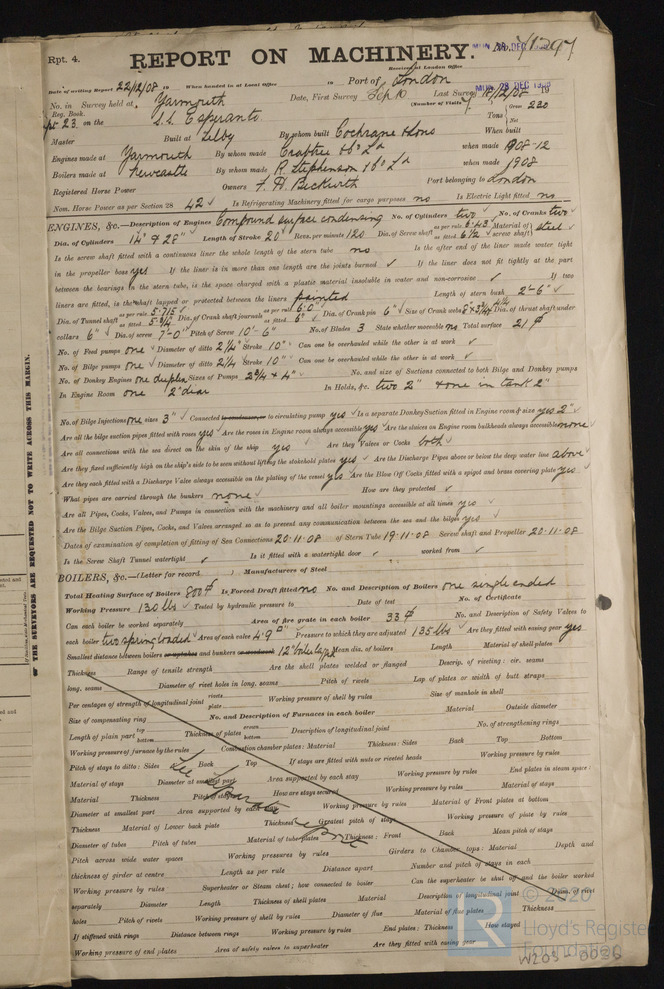 Rpt. 4.
REPORT ON MACHINERY. No. 71297
MON. 28 DEC 1908
Received at London Office
Date of writing Report 22/12/08 10 When handed in at Local Office to Port of London
No. in Survey held at Yarmouth Date, First Survey Sep 10 Last Survey 18/12/08 19
Reg. Book. (Number of Visits 7
23 on the S.S. Esperanto Tons Gross 230 Net
Master Built at Selby By whom built Cochrane & Sons When built 1908-12
Engines made at Yarmouth By whom made Crabtree & Co Ld when made 1908
Boilers made at Newcastle By whom made R. Stephenson & Co Ld when made 1908
Registered Horse Power Owners F. A. Beckwith Port belonging to London
Nom. Horse Power as per Section 28 42 Is Refrigerating Machinery fitted for cargo purposes no Is Electric Light fitted no
ENGINES, &c.—Description of Engines Compound surface condensing No. of Cylinders two No. of Cranks two
Dia. of Cylinders 14" & 28" Length of Stroke 20" Revs. per minute 120 Dia. of Screw shaft as per rule 6.43 as fitted 6 1/2 Material of screw shaft steel
Is the screw shaft fitted with a continuous liner the whole length of the stern tube no Is the after end of the liner made water tight
in the propeller boss yes If the liner is in more than one length are the joints burned If the liner does not fit tightly at the part
between the bearings in the stern tube, is the space charged with a plastic material insoluble in water and non-corrosive If two
liners are fitted, is the shaft lapped or protected between the liners painted Length of stern bush 2'-6"
Dia. of Tunnel shaft as per rule 5.715 as fitted 5 3/4" Dia. of Crank shaft journals as per rule 6.0" as fitted 6" Dia. of Crank pin 6" Size of Crank webs Dia. of thrust shaft under
collars 6" Dia. of screw 7'-0" Pitch of Screw 10'-6" No. of Blades 3 State whether moveable no Total surface 21 ft
No. of Feed pumps one Diameter of ditto 2 1/4" Stroke 10" Can one be overhauled while the other is at work
No. of Bilge pumps one Diameter of ditto 2 1/4 Stroke 10" Can one be overhauled while the other is at work
No. of Donkey Engines one duplex Sizes of Pumps 2 3/4 × 4" No. and size of Suctions connected to both Bilge and Donkey pumps
In Engine Room one 2" diar In Holds, &c. two 2" & one in tank 2"
No. of Bilge Injections one sizes 3" Connected to condenser, or to circulating pump yes Is a separate Donkey Suction fitted in Engine room & size yes 2"
Are all the bilge suction pipes fitted with roses yes Are the roses in Engine room always accessible yes Are the sluices on Engine room bulkheads always accessible none
Are all connections with the sea direct on the skin of the ship yes Are they Valves or Cocks both
Are they fixed sufficiently high on the ship's side to be seen without lifting the stokehold plates yes Are the Discharge Pipes above or below the deep water line above
Are they each fitted with a Discharge Valve always accessible on the plating of the vessel yes Are the Blow Off Cocks fitted with a spigot and brass covering plate yes
What pipes are carried through the bunkers none How are they protected
Are all Pipes, Cocks, Valves, and Pumps in connection with the machinery and all boiler mountings accessible at all times yes
Are the Bilge Suction Pipes, Cocks, and Valves arranged so as to prevent any communication between the sea and the bilges yes
Dates of examination of completion of fitting of Sea Connections 20.11.08 of Stern Tube 19.11.08 Screw shaft and Propeller 20.11.08
Is the Screw Shaft Tunnel watertight Is it fitted with a watertight door worked from
BOILERS, &c.—(Letter for record ) Manufacturers of Steel
Total Heating Surface of Boilers 800 ft Is Forced Draft fitted no No. and Description of Boilers one single ended
Working Pressure 130 lbs Tested by hydraulic pressure to Date of test No. of Certificate
Can each boiler be worked separately Area of fire grate in each boiler 33 ft No. and Description of Safety Valves to
each boiler two spring loaded Area of each valve 4.9 Pressure to which they are adjusted 135 lbs Are they fitted with easing gear yes
Smallest distance between boilers or uptakes and bunkers or woodwork 12" Mean dia. of boilers Length Material of shell plates
Thickness Range of tensile strength Are the shell plates welded or flanged Descrip. of riveting: cir. seams
long. seams Diameter of rivet holes in long. seams Pitch of rivets Lap of plates or width of butt straps
Per centages of strength of longitudinal joint rivets plate Working pressure of shell by rules Size of manhole in shell
Size of compensating ring No. and Description of Furnaces in each boiler Material Outside diameter
Length of plain part top bottom Thickness of plates crown bottom Description of longitudinal joint No. of strengthening rings
Working pressure of furnace by the rules Combustion chamber plates: Material Thickness: Sides Back Top Bottom
Pitch of stays to ditto: Sides Back Top If stays are fitted with nuts or riveted heads Working pressure by rules
Material of stays Diameter at smallest part Area supported by each stay Working pressure by rules End plates in steam space:
Material Thickness Pitch of stays How are stays secured Working pressure by rules Material of stays
Diameter at smallest part Area supported by each stay Working pressure by rules Material of Front plates at bottom
Thickness Material of Lower back plate Thickness Greatest pitch of stays Working pressure of plate by rules
Diameter of tubes Pitch of tubes Material of tube plates Thickness: Front Back Mean pitch of stays
Pitch across wide water spaces Working pressures by rules Girders to Chamber tops: Material Depth and
thickness of girder at centre Length as per rule Distance apart Number and pitch of stays in each
Working pressure by rules Superheater or Steam chest; how connected to boiler Can the superheater be shut off and the boiler worked
separately Diameter Length Thickness of shell plates Material Description of longitudinal joint Diam. of rivet
holes Pitch of rivets Working pressure of shell by rules Diameter of flue Material of flue plates Thickness
If stiffened with rings Distance between rings Working pressure by rules End plates: Thickness How stayed
Working pressure of end plates Area of safety valves to superheater Are they fitted with easing gear
See Separate Rpt
OF THE SURVEYORS ARE REQUESTED NOT TO WRITE ACROSS THIS MARGIN.
© 2020
Lloyd's Register
Foundation
W203-0036